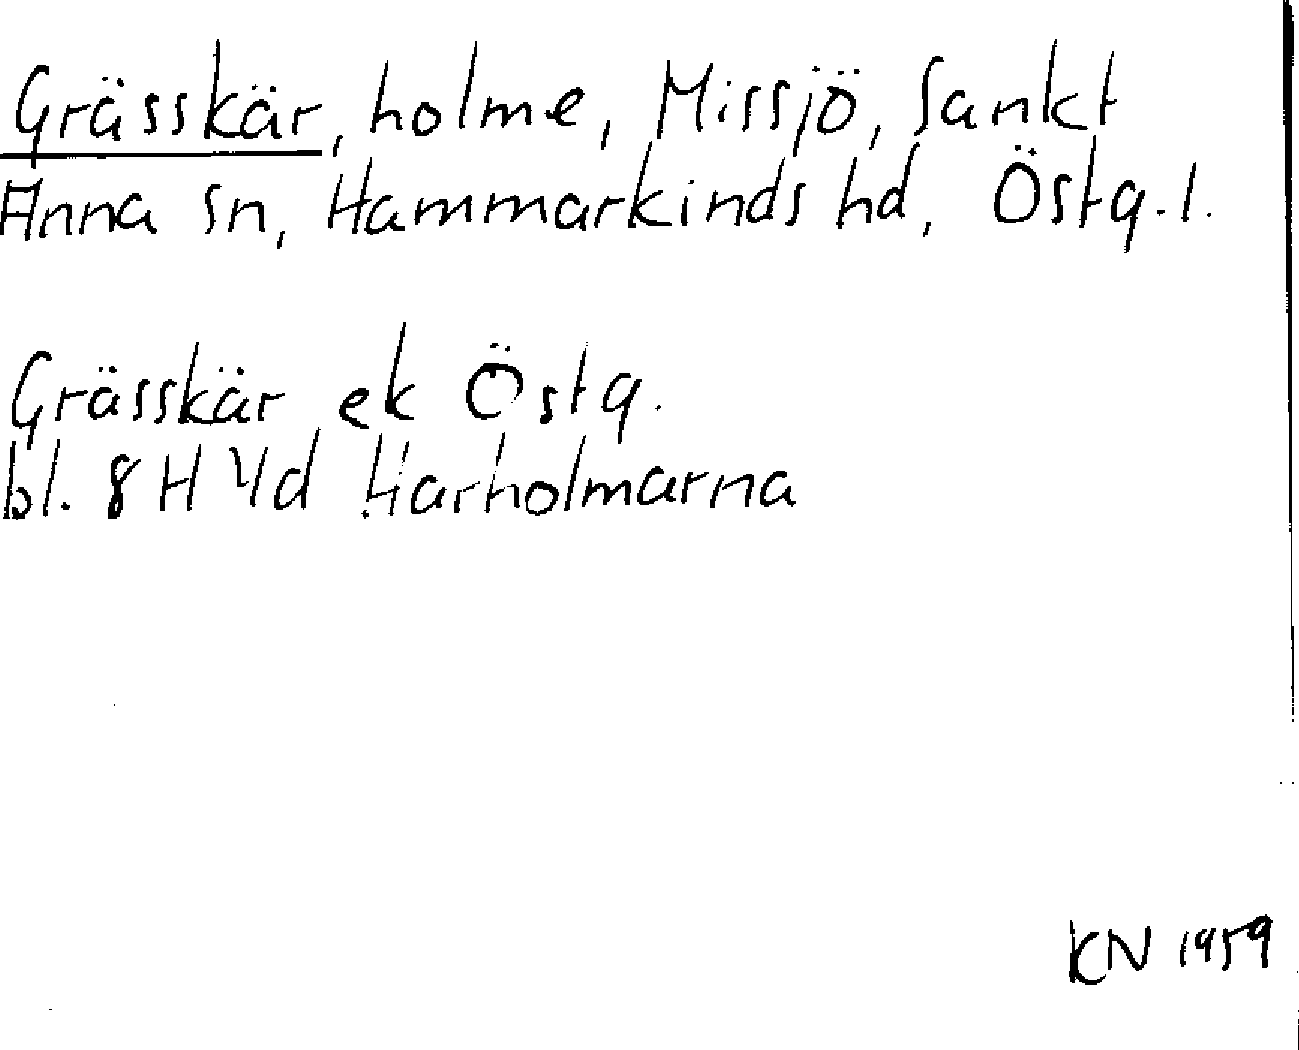 Grässkär, holme, Missjö, Sankt
Anna sn, Hammarkinds hd, Östg.l.
Grässkär ek Östg.
bl. 8 H 4d Harholmarna
KN 1959